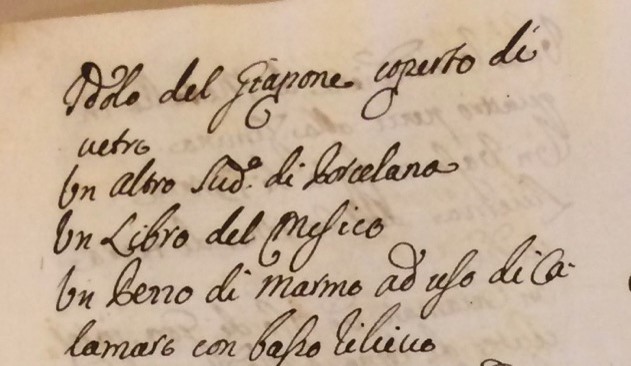 Idolo del Giapone coperto di
uetro
Un altro Sud.º di Porcelana
Un Libro del Mesico
Un Pezzo di Marmo ad uso di Ca-
lamaro con basso rilieuo